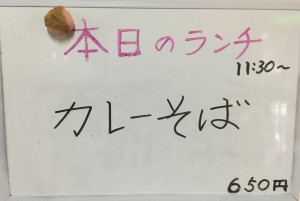 本日のランチ
11:30〜
カレーそば
650円